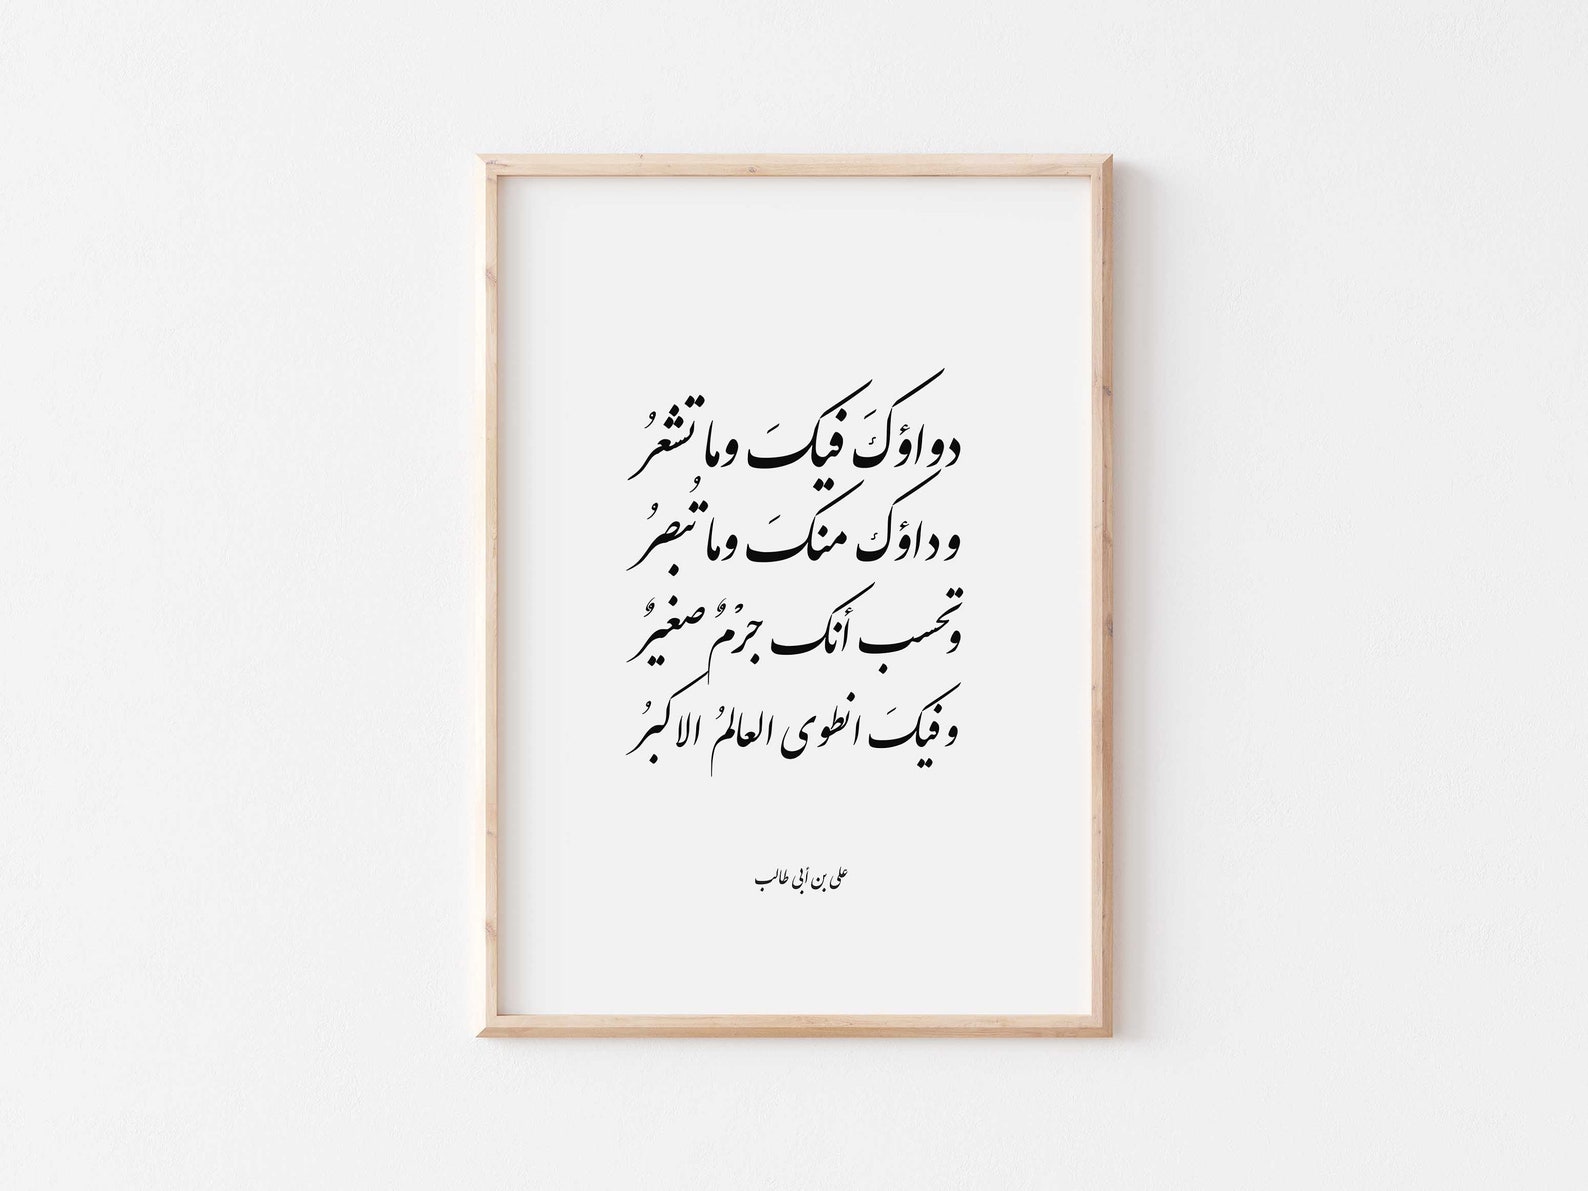 دواؤكَ فيكَ وما تشعرُ
وداؤك منكَ وما تُبصرُ
وتحسب أنك جرْمٌ صغيرٌ
وفيكَ انطوى العالمُ الاكبرُ
علی بن أبی طالب